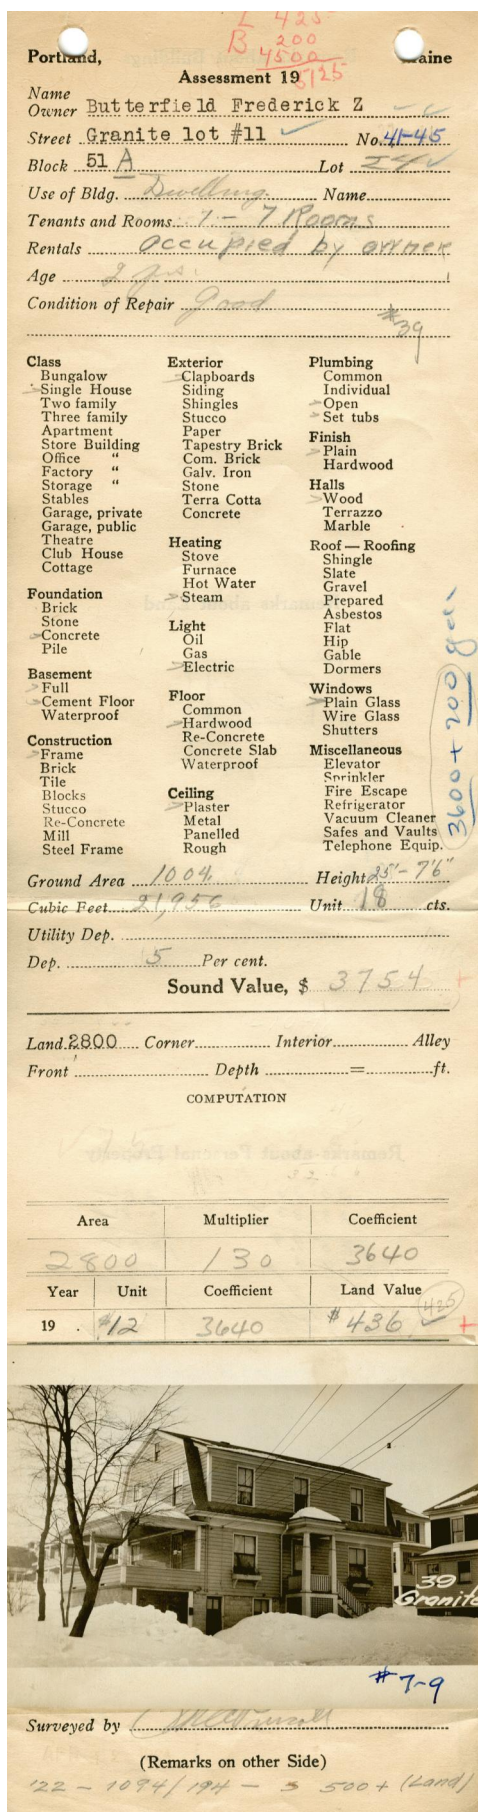 L 425
B 200
4500
5125
Portland, Maine
Assessment 19
Name
Owner Butterfield Frederick Z
Street Granite lot #11 No. 41-45
Block 51 A Lot I4
Use of Bldg. Dwelling Name
Tenants and Rooms 1 - 7 Rooms
Rentals occupied by owner
Age 2 yrs.
Condition of Repair Good
#39
Class
Bungalow
Single House
Two family
Three family
Apartment
Store Building
Office "
Factory "
Storage "
Stables
Garage, private
Garage, public
Theatre
Club House
Cottage
Foundation
Brick
Stone
Concrete
Pile
Basement
Full
Cement Floor
Waterproof
Construction
Frame
Brick
Tile
Blocks
Stucco
Re-Concrete
Mill
Steel Frame
Exterior
Clapboards
Siding
Shingles
Stucco
Paper
Tapestry Brick
Com. Brick
Galv. Iron
Stone
Terra Cotta
Concrete
Heating
Stove
Furnace
Hot Water
Steam
Light
Oil
Gas
Electric
Floor
Common
Hardwood
Re-Concrete
Concrete Slab
Waterproof
Ceiling
Plaster
Metal
Panelled
Rough
Plumbing
Common
Individual
Open
Set tubs
Finish
Plain
Hardwood
Halls
Wood
Terrazzo
Marble
Roof — Roofing
Shingle
Slate
Gravel
Prepared
Asbestos
Flat
Hip
Gable
Dormers
Windows
Plain Glass
Wire Glass
Shutters
Miscellaneous
Elevator
Sprinkler
Fire Escape
Refrigerator
Vacuum Cleaner
Safes and Vaults
Telephone Equip.
3600 + 200
Ground Area 1004 Height 25'-7'6"
Cubic Feet 21,956 Unit 18 cts.
Utility Dep.
Dep. 5 Per cent.
Sound Value, $ 3754
Land 2800 Corner Interior Alley
Front Depth = ft.
COMPUTATION
Area Multiplier Coefficient
2800 130 3640
Year Unit Coefficient Land Value
425
19 . $12 3640 $436
39
Granite
#7-9
Surveyed by
(Remarks on other Side)
'22 - 1094/194 - 500+ (Land)